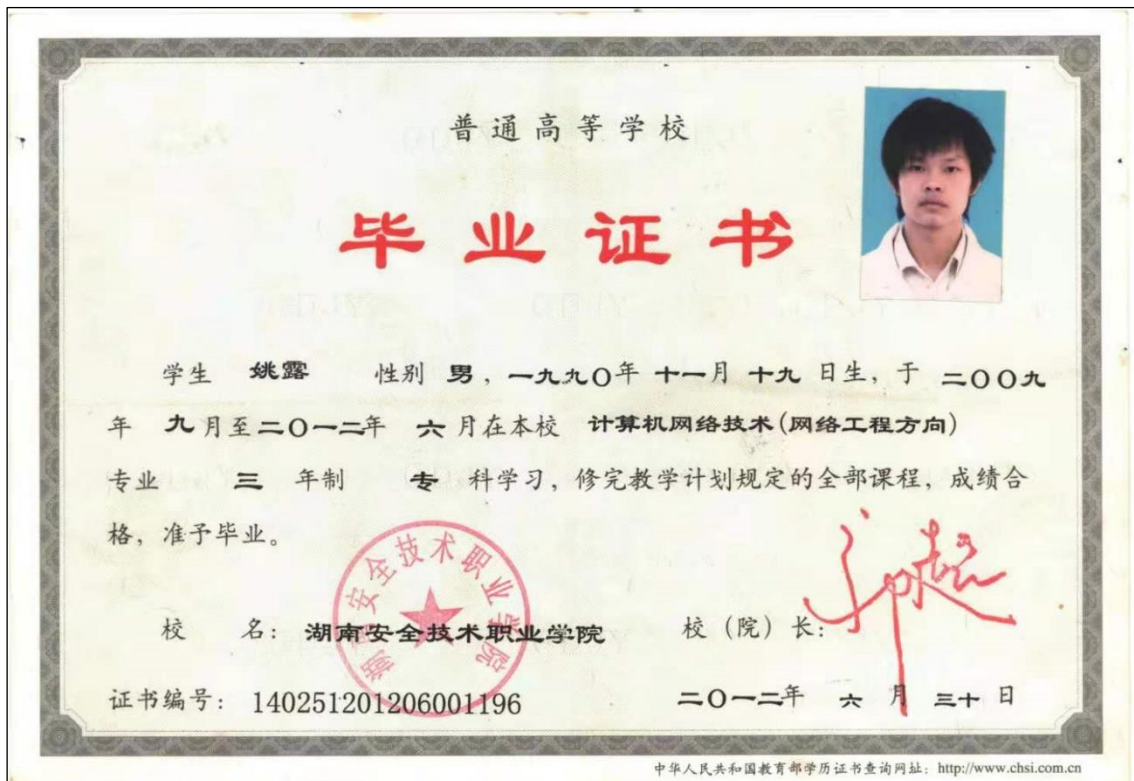 普通高等学校
毕业证书
学生 姚露 性别 男，一九九〇年 十一月 十九 日生，于 二〇〇九
年 九月至二〇一二年 六 月在本校 计算机网络技术(网络工程方向)
专业 三 年制 专 科学习，修完教学计划规定的全部课程，成绩合
格，准予毕业。
湖南安全技术职业学院
校 名：湖南安全技术职业学院 校（院）长：
证书编号：140251201206001196 二〇一二年 六 月 三十 日
中华人民共和国教育部学历证书查询网址：http://www.chsi.com.cn